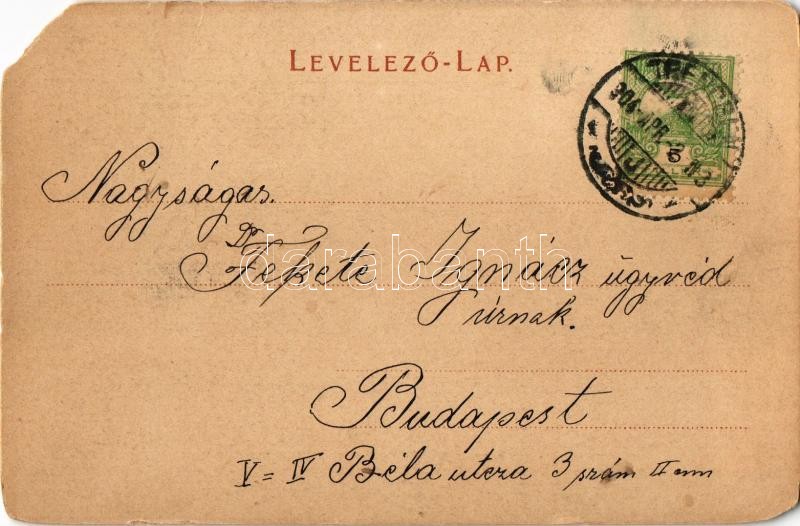 LEVELEZŐ-LAP.
904 APR
5
Nagyságas
Dr
Fekete Ignácz ügyvéd
úrnak.
Budapest
V = IV Béla utcza 3 szám II em
darabanth